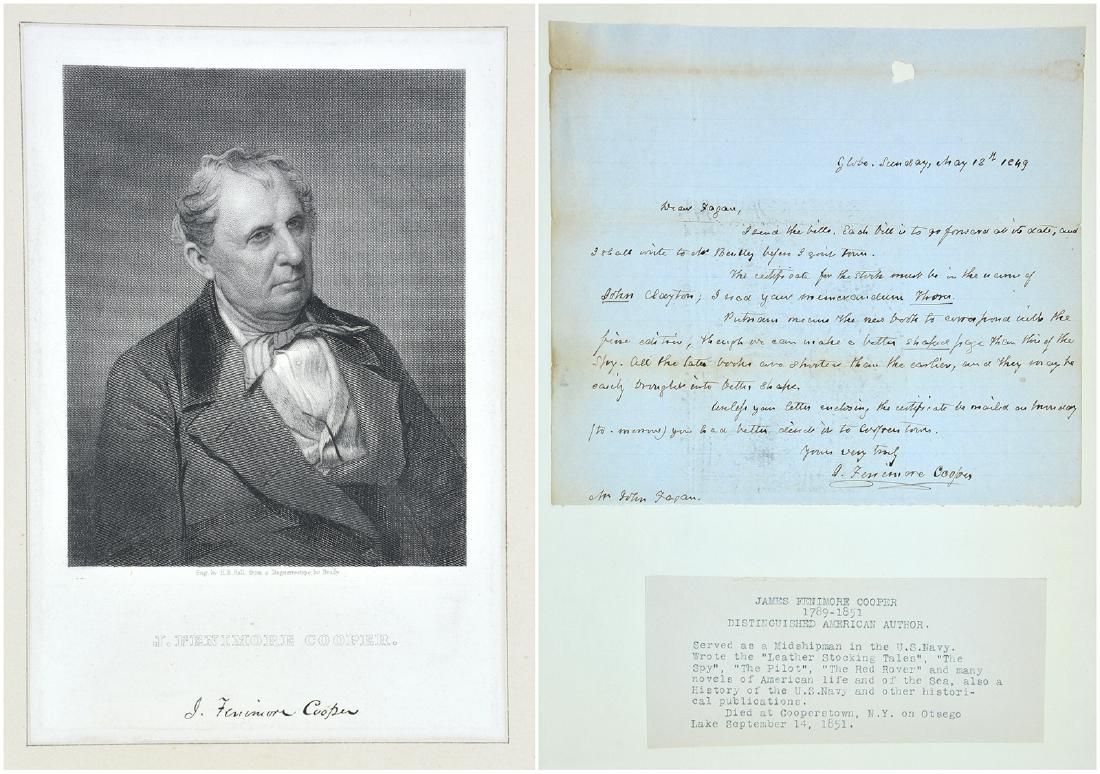 Eng. by H.B. Hall from a Daguerreotype by Brady.
J. FENIMORE COOPER.
J. Fenimore Cooper
Globe. Sunday, May 13th 1849
Dear Fagan,
I send the bills. Each bill is to go forward at its date, and
I shall write to Mr Bentley before I quit town.
The certificate for the stock must be in the name of
John Clayton; I read your memorandum Thorn.
Putnam means the new book to correspond with the
fine edition, though we can make a better shaped page than this of the
Spy. All the later books are shorter than the earlier, and they may be
easily brought into better shape.
Unless your letter enclosing the certificate be mailed on
(to-morrow) you had better direct it to Cooperstown.
Yours very truly
J. Fenimore Cooper
Mr John Fagan.
JAMES FENIMORE COOPER
1789-1851
DISTINGUISHED AMERICAN AUTHOR.
Served as a Midshipman in the U.S.Navy.
Wrote the "Leather Stocking Tales", "The
Spy", "The Pilot", "The Red Rover" and many
novels of American life and of the Sea, also a
History of the U.S.Navy and other histori-
cal publications.
Died at Cooperstown, N.Y. on Otsego
Lake September 14, 1851.